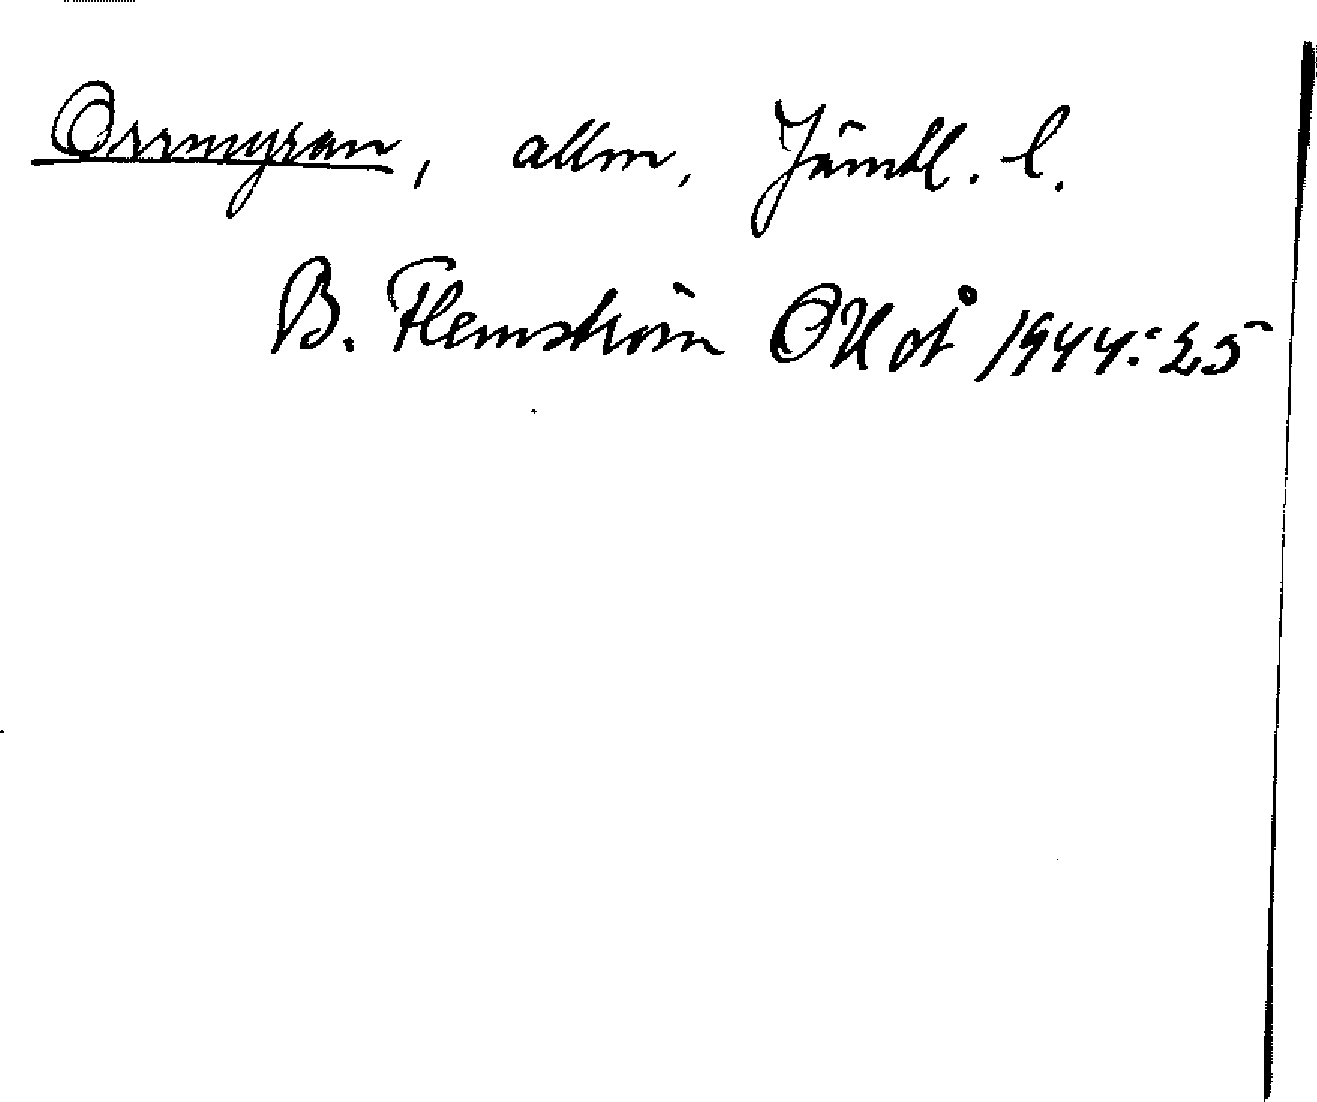 Orrmyran, allm, Jämtl. l.
B. Flemström OUoÅ 1944:25